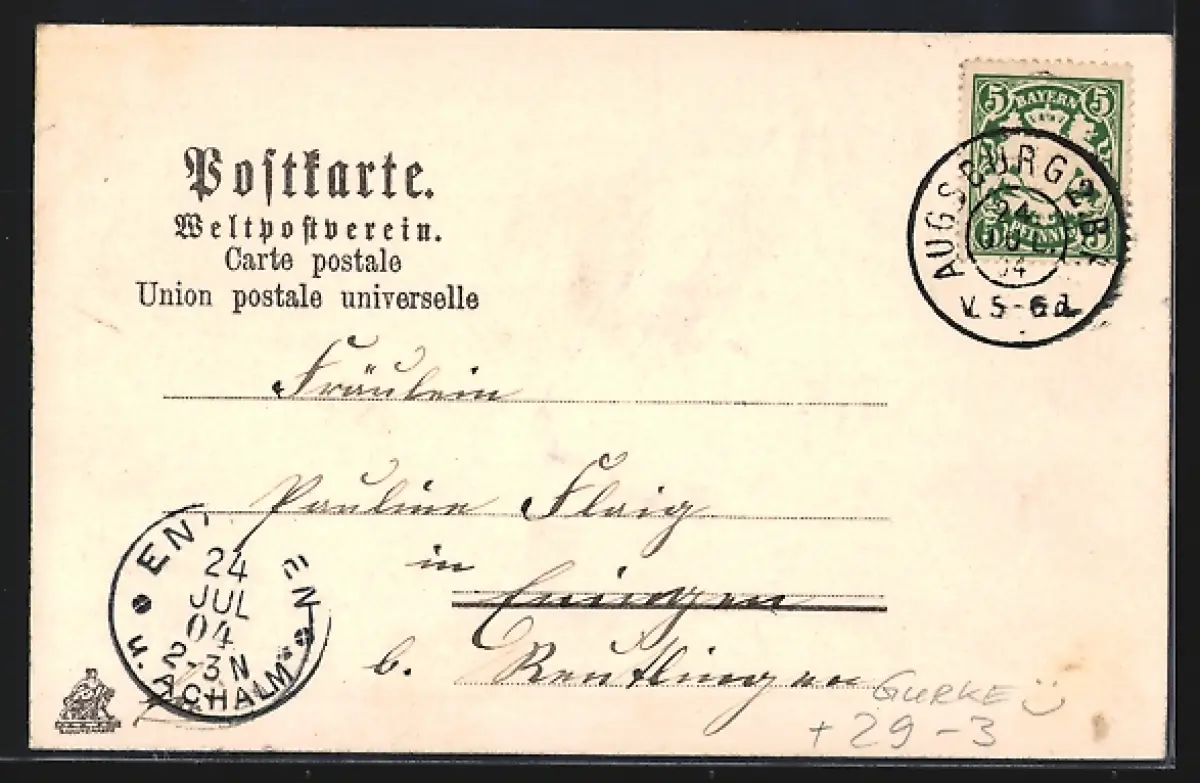 Postkarte.
Weltpostverein.
Carte postale
Union postale universelle
5 BAYERN 5
5 PFENNIG 5
AUGSBURG 2. B.
24
JUL.
04
V. 5-6
Fräulein
Pauline Flaig
in
Eningen
b. Reutlingen
ENINGEN
24
JUL
04
2-3 N
u. ACHALM
GURKE
+ 29-3